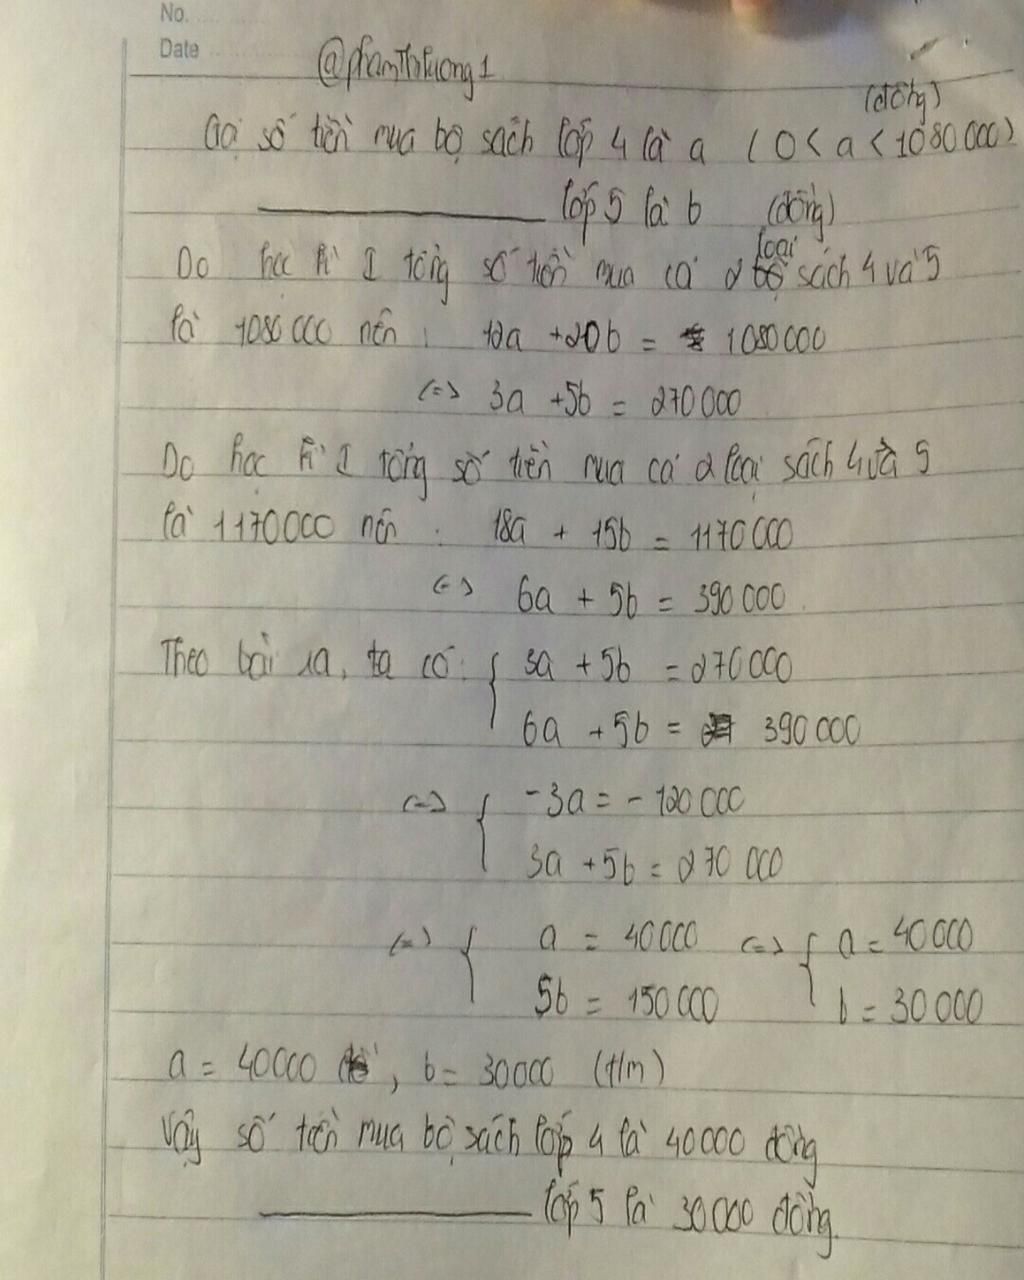 No.
Date
@phamthphuong1
(đồng)
Gọi số tiền mua bộ sách lớp 4 là a (0 < a < 1080 000)
lớp 5 là b (đồng)
loại
Do học kì I tổng số tiền mua cả 2 bộ sách 4 và 5
là 1080 000 nên : 12a + 20b = 1080 000
<=> 3a + 5b = 270 000
Do học kì I tổng số tiền mua cả 2 loại sách 4 và 5
là 1170000 nên : 18a + 15b = 1170 000
<=> 6a + 5b = 390 000
Theo bài ra, ta có: { 3a + 5b = 270 000
6a + 5b = 390 000
<=> { -3a = - 120 000
3a + 5b = 270 000
<=> { a = 40 000 <=> { a = 40 000
5b = 150 000 b = 30 000
a = 40000 , b = 30000 (t/m)
Vậy số tiền mua bộ sách lớp 4 là 40000 đồng
lớp 5 là 30000 đồng.